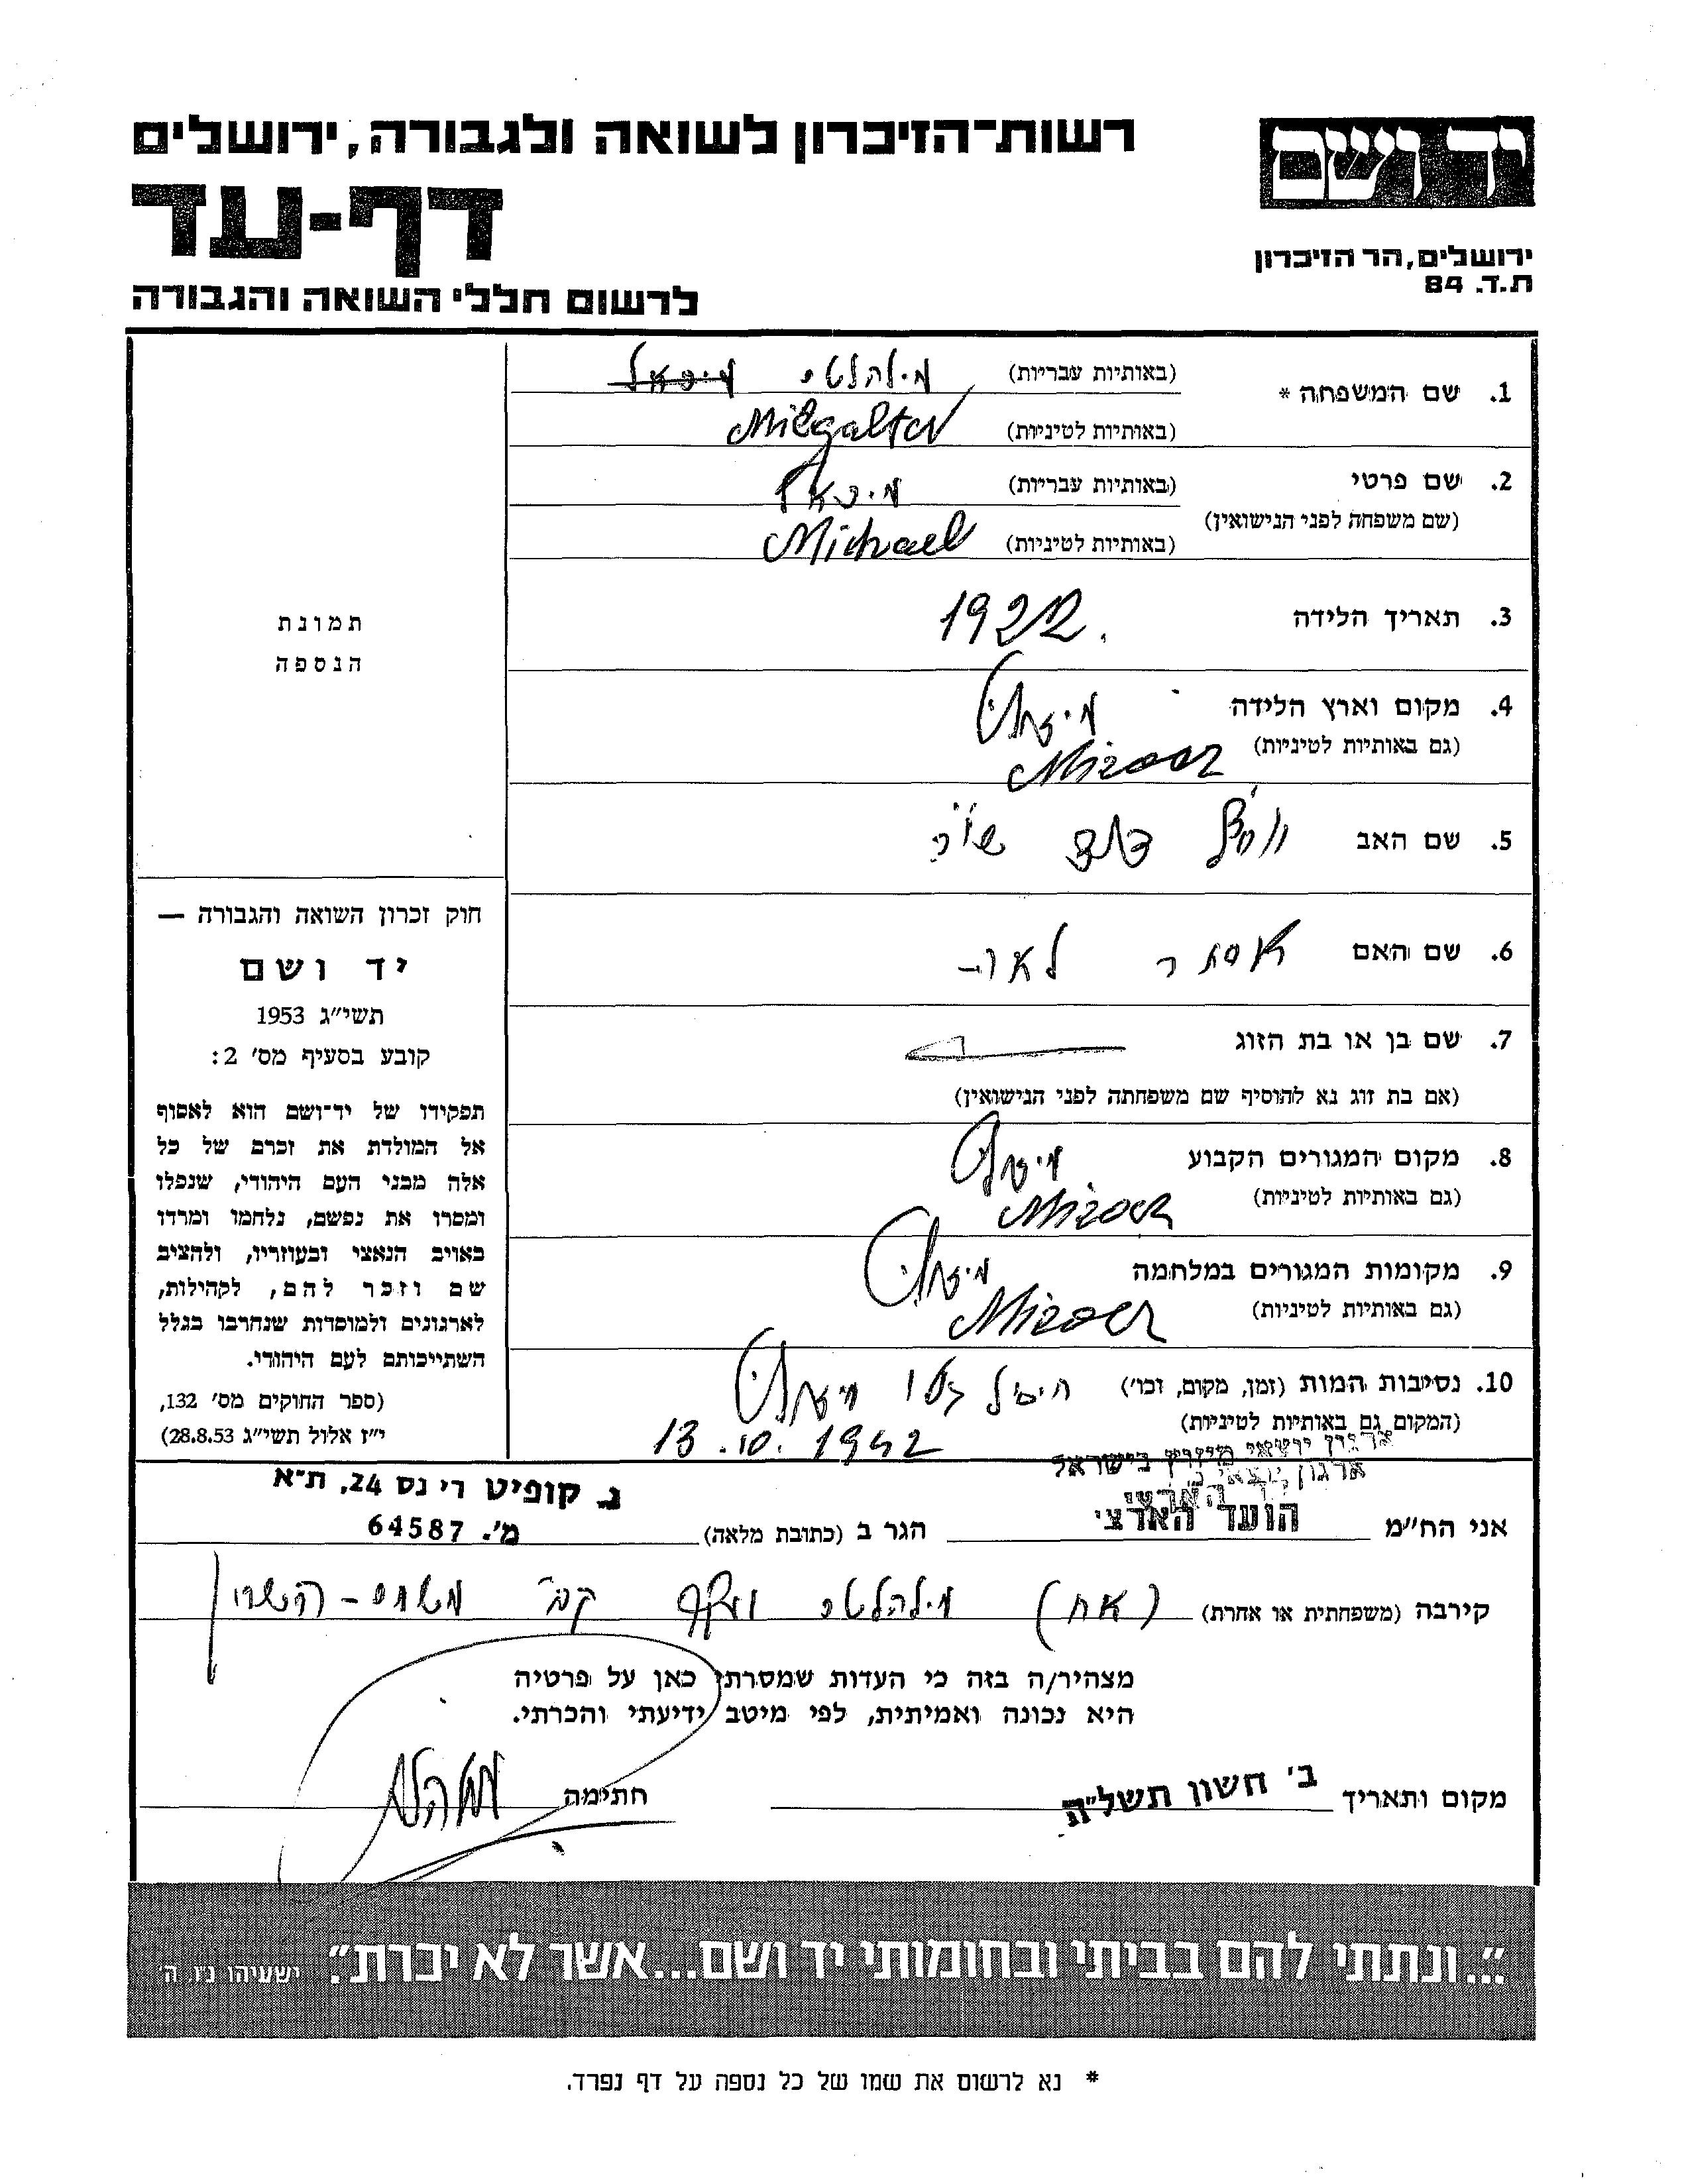 יד ושם
ירושלים, הר הזיכרון
ת.ד. 84
רשות-הזיכרון לשואה ולגבורה, ירושלים
דף-עד
לרשום חללי השואה והגבורה
1. שם המשפחה * (באותיות עבריות) מילהלטר מיכאל
(באותיות לטיניות) Milgalter
2. שם פרטי (באותיות עבריות) מיכאל
(שם משפחה לפני הנישואין)
(באותיות לטיניות) Michael
3. תאריך הלידה 1922.
4. מקום וארץ הלידה מיזוץ
(גם באותיות לטיניות) Mizocz
5. שם האב דוד
6. שם האם אסתר לאה
7. שם בן או בת הזוג
(אם בת זוג נא להוסיף שם משפחתה לפני הנישואין)
8. מקום המגורים הקבוע מיזוץ
(גם באותיות לטיניות) Mizocz
9. מקומות המגורים במלחמה מיזוץ
(גם באותיות לטיניות) Mizocz
10. נסיבות המות (זמן, מקום, וכו') חיסול גטו מיזוץ
(המקום גם באותיות לטיניות)
13.10.1942
תמונת
הנספה
חוק זכרון השואה והגבורה —
יד ושם
תשי"ג 1953
קובע בסעיף מס' 2:
תפקידו של יד-ושם הוא לאסוף
אל המולדת את זכרם של כל
אלה מבני העם היהודי, שנפלו
ומסרו את נפשם, נלחמו ומרדו
באויב הנאצי ובעוזריו, ולהציב
שם וזכר להם, לקהילות,
לארגונים ולמוסדות שנחרבו בגלל
השתייכותם לעם היהודי.
(ספר החוקים מס' 132,
י"ז אלול תשי"ג 28.8.53)
ארגון יוצאי מיזוץ בישראל
אני הח"מ הועד הארצי הגר ב (כתובת מלאה) נ. קופיט רי נס 24, ת"א
מ'. 64587
קירבה (משפחתית או אחרת) (אח) מילהלטר
מצהיר/ה בזה כי העדות שמסרתי כאן על פרטיה
היא נכונה ואמיתית, לפי מיטב ידיעתי והכרתי.
מקום ותאריך ב' חשון תשל"ה חתימה
"...ונתתי להם בביתי ובחומותי יד ושם...אשר לא יכרת". ישעיהו נ"ו, ה'
* נא לרשום את שמו של כל נספה על דף נפרד.